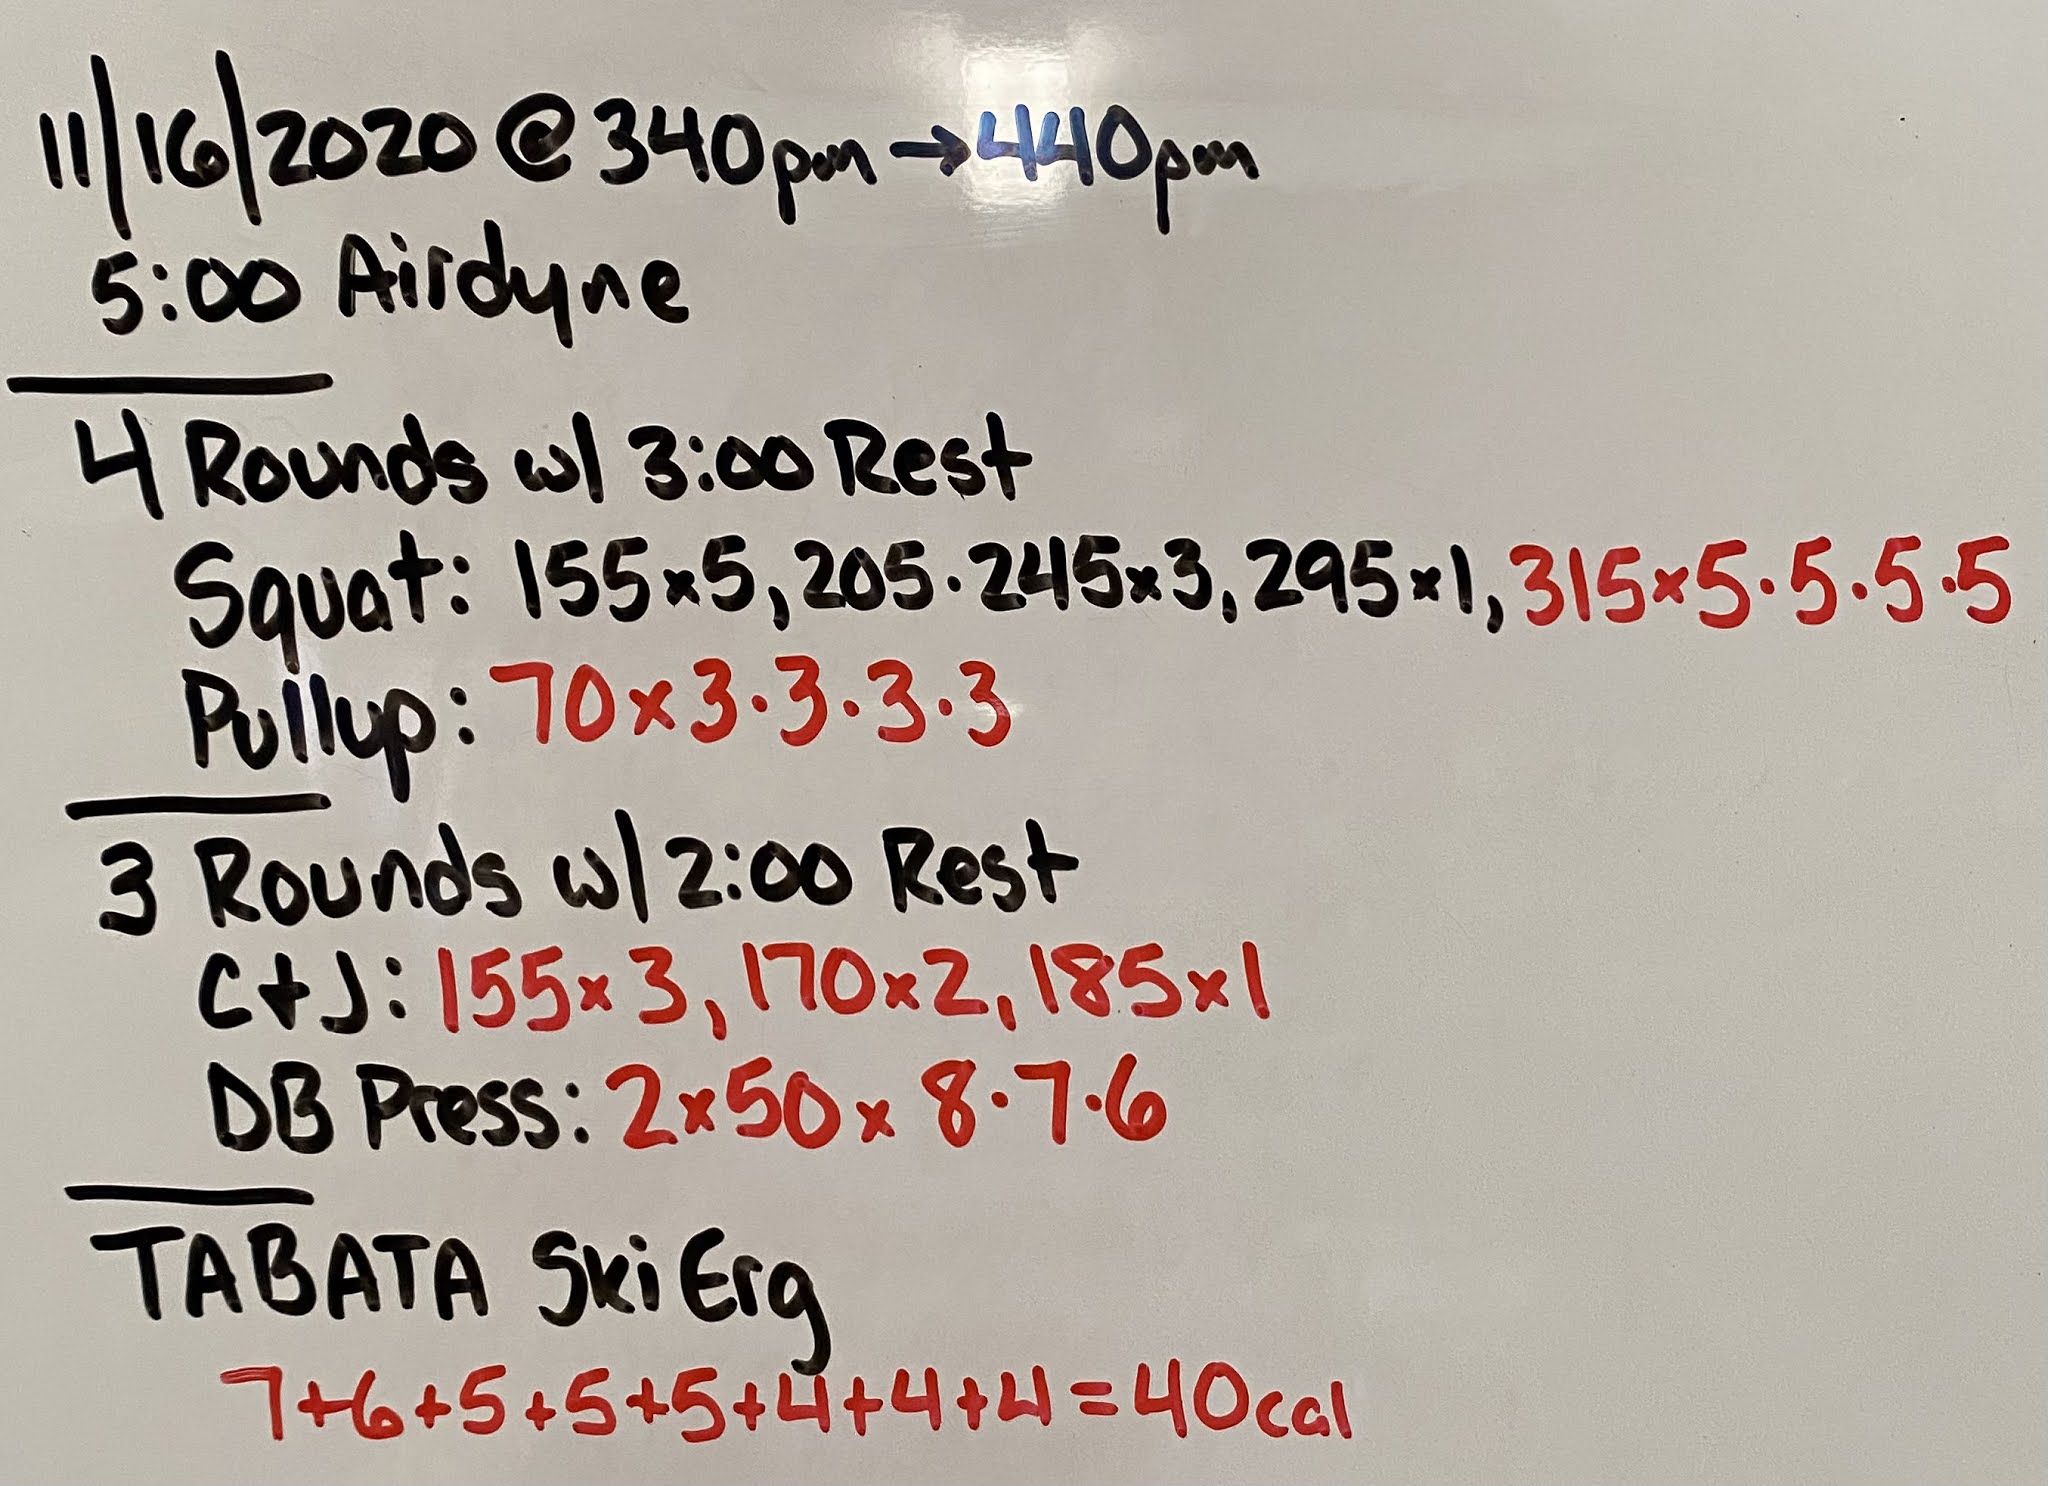 11/16/2020 @ 340pm → 440pm
5:00 Airdyne
4 Rounds w/ 3:00 Rest
Squat: 155x5, 205·245x3, 295x1, 315x5·5·5·5
Pullup: 70x3·3·3·3
3 Rounds w/ 2:00 Rest
C+J: 155x3, 170x2, 185x1
DB Press: 2x50x 8·7·6
TABATA Ski Erg
7+6+5+5+5+4+4+4=40cal